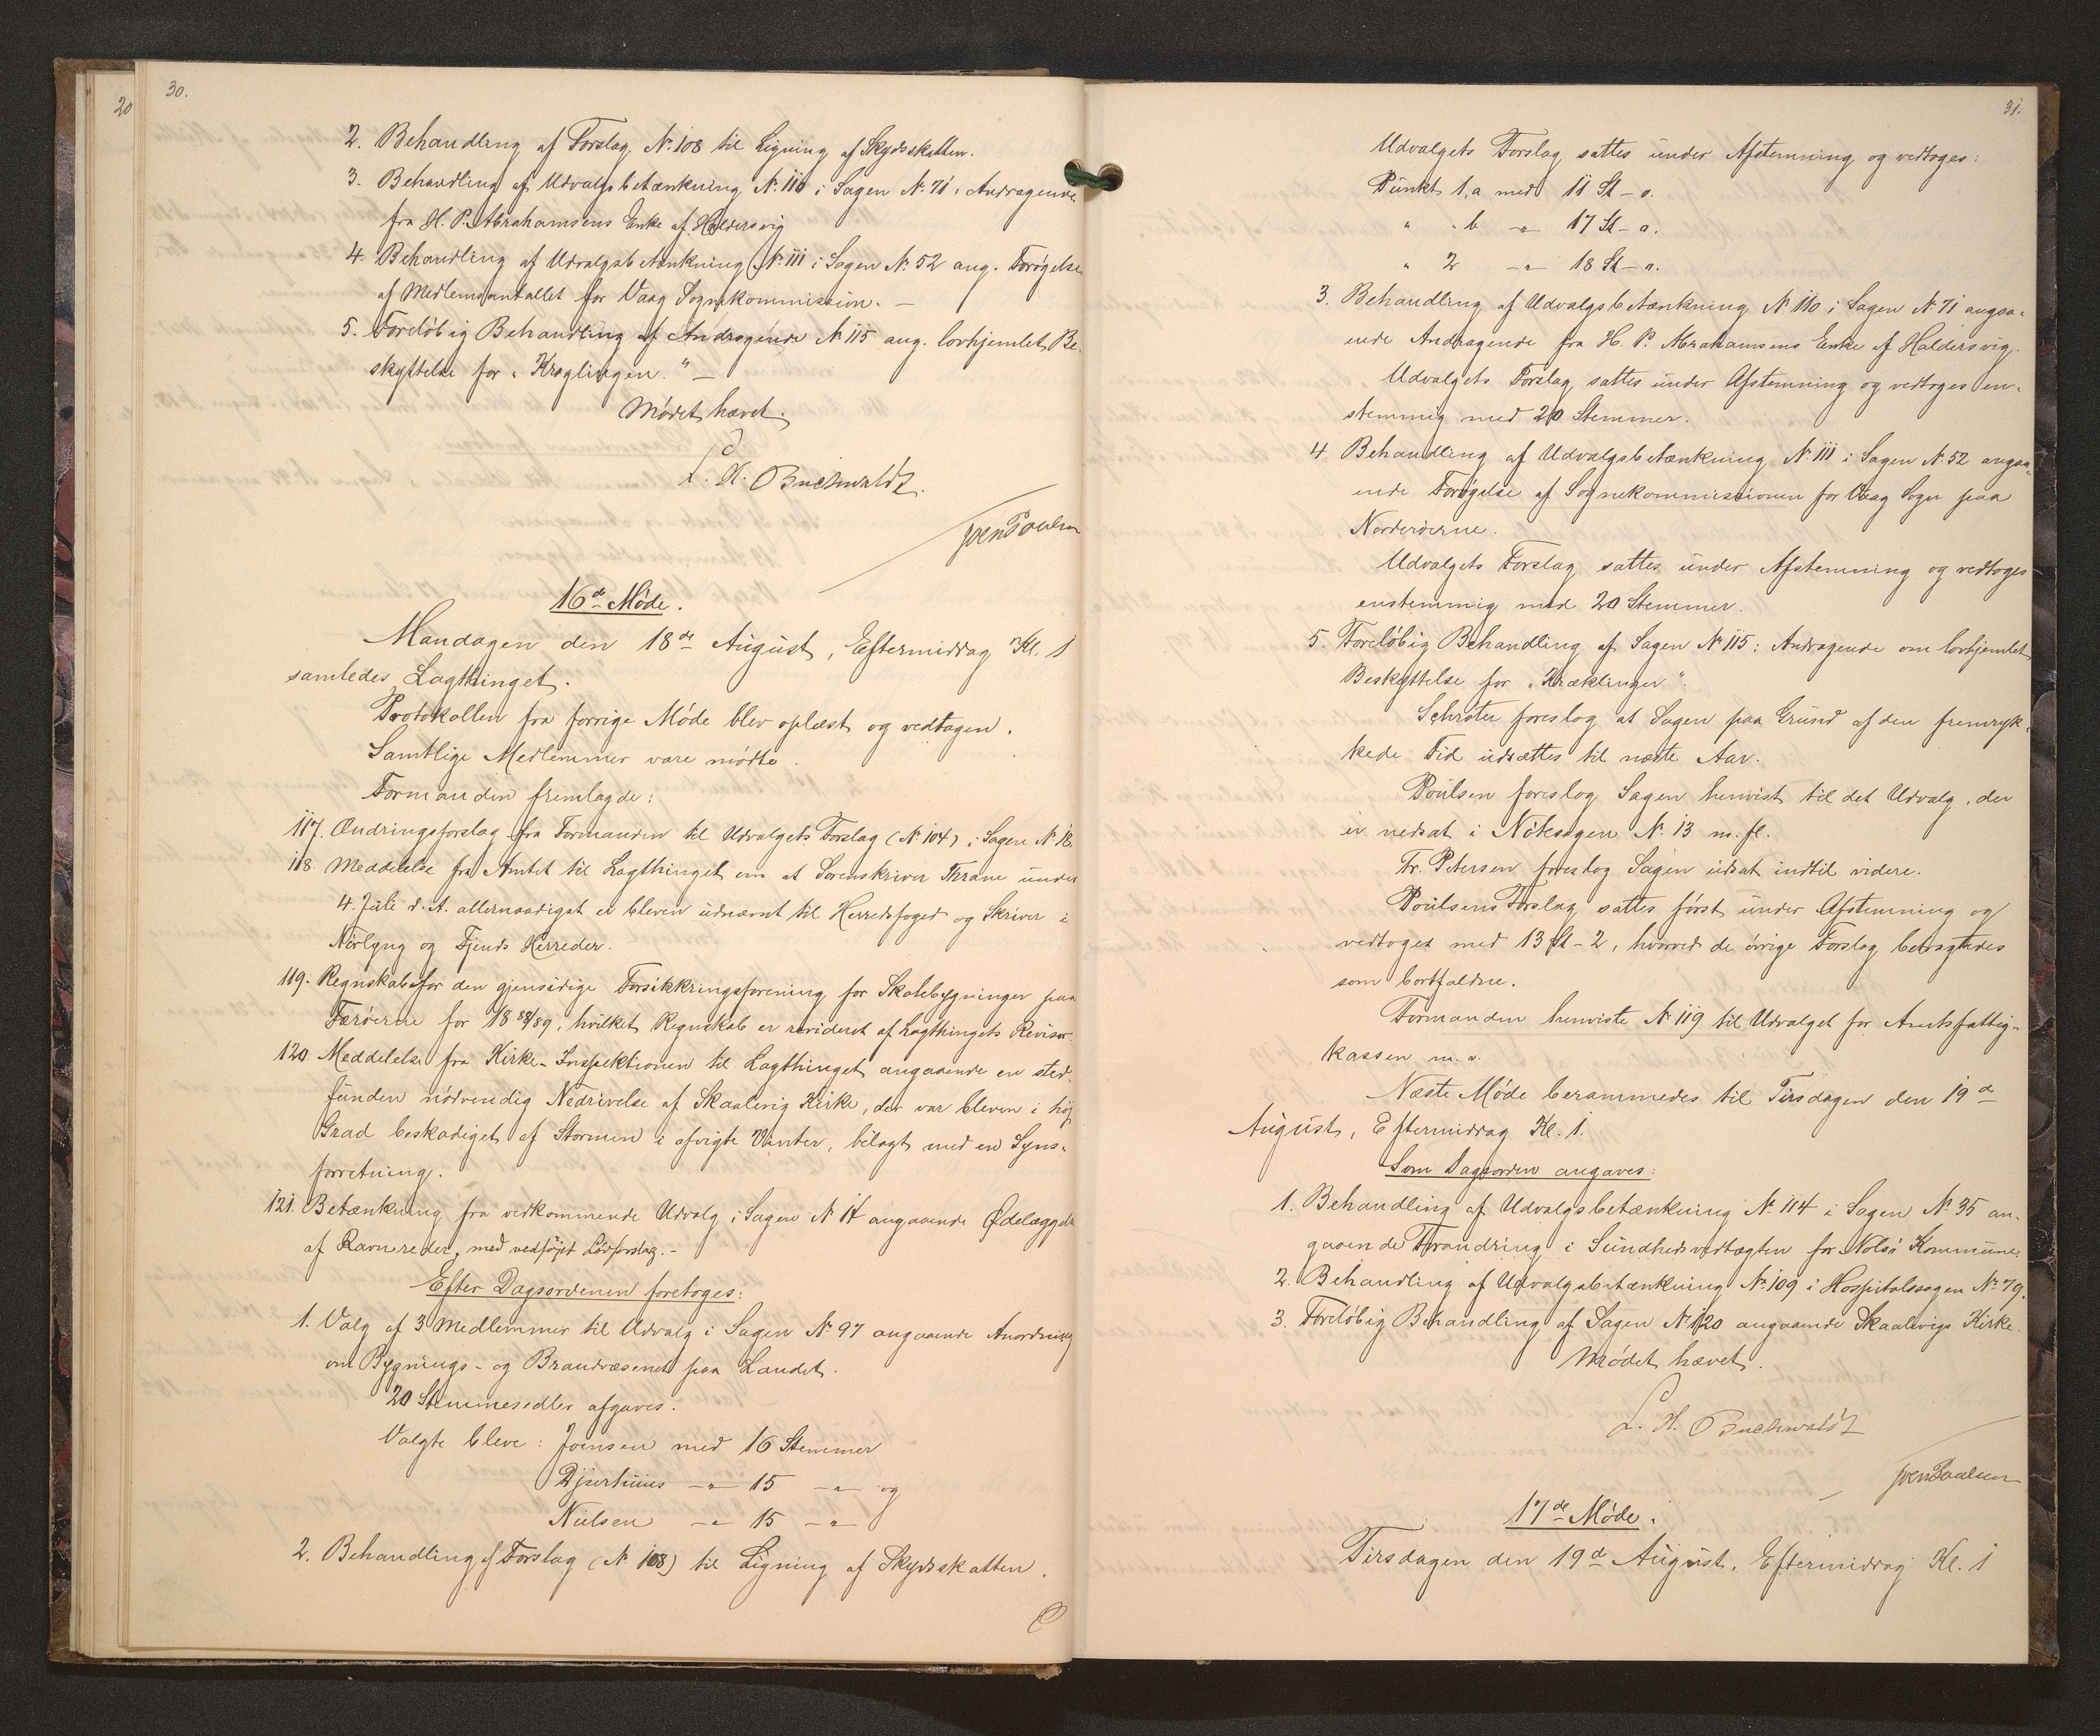 20
30.
2. Behandling af Forslag No 108 til Ligning af Skydsskatten.
3. Behandling af Udvalgsbetænkning No 110 i Sagen No 71, Andragende
fra H. P. Abrahamsens Enke af Haldersvig
4. Behandling af Udvalgsbetænkning (No 111 i Sagen No 52 ang. Forøgelse
af Medlemsantallet for Vaag Sognekommission. —
5. Foreløbig Behandling af Andragende No 115 ang. lovhjemlet Be-
skyttelse for „Kræglingen." —
Mødet hævet.
L. H. Buchwaldt.
Joen Poulsen
16de Møde.
Mandagen den 18de August, Eftermiddag Kl. 1
samledes Lagthinget.
Protokollen fra forrige Møde blev oplæst og vedtagen.
Samtlige Medlemmer vare mødte.
Formanden fremlagde:
117. Ændringsforslag fra Formanden til Udvalgets Forslag (No 104) i Sagen No 18.
118. Meddelelse fra Amtet til Lagthinget om at Sorenskriver Thrane under
4. Juli d. A. allernaadigst er bleven udnævnt til Herredsfoged og Skriver i
Nørlyng og Fjends Herreder.
119. Regnskab for den gjensidige Forsikkringsforening for Skolebygninger paa
Færøerne for 1888/89, hvilket Regnskab er revideret af Lagthingets Revisor.
120. Meddelelse fra Kirke-Inspektionen til Lagthinget angaaende en sted-
funden nødvendig Nedrivelse af Skaalevig Kirke, der var bleven i høj
Grad beskadiget af Stormen i afvigte Vinter, bilagt med en Syns-
forretning.
121. Betænkning fra vedkommende Udvalg i Sagen No 14 angaaende Ødelæggelse
af Ravnereder, med vedføjet Lovforslag. -
Efter Dagsordenen foretoges:
1. Valg af 3 Medlemmer til Udvalg i Sagen No 97 angaaende Anordning
om Bygnings- og Brandvæsenet paa Landet.
20 Stemmesedler afgaves.
Valgte bleve: Joensen med 16 Stemmer
Djurhuus —„— 15 —„— og
Nielsen —„— 15 —„—
2. Behandling af Forslag (No 108) til Ligning af Skydsskatten.
31.
Udvalgets Forslag sattes under Afstemning og vedtoges:
Punkt 1, a med 11 St – o.
„ „ b —„— 17 St – o.
„ 2 —„— 18 St – o.
3. Behandling af Udvalgsbetænkning No 110 i Sagen No 71 angaa-
ende Andragende fra H. P. Abrahamsens Enke af Haldersvig.
Udvalgets Forslag sattes under Afstemning og vedtoges en-
stemmig med 20 Stemmer.
4 Behandling af Udvalgsbetænkning No 111 i Sagen No 52 angaa-
ende Forøgelse af Sognekommissionen for Vaag Sogn paa
Norderøerne.
Udvalgets Forslag sattes under Afstemning og vedtoges
enstemmig med 20 Stemmer.
5. Foreløbig Behandling af Sagen No 115: Andragende om lovhjemlet
Beskyttelse for „Kræklinger".
Schrøter foreslog at Sagen paa Grund af den fremryk-
kede Tid udsættes til næste Aar.
Poulsen foreslog Sagen henvist til det Udvalg, der
er nedsat i Nótsagen No 13 m. fl.
Fr. Petersen foreslog Sagen udsat indtil videre.
Poulsens Forslag sattes først under Afstemning og
vedtoges med 13 St – 2, hvorved de øvrige Forslag betragtedes
som bortfaldne.
Formanden henviste No 119 til Udvalget for Amtsfattig-
kassen m. v.
Næste Møde berammedes til Tirsdagen den 19de
August, Eftermiddag Kl. 1.
Som Dagsorden angaves:
1. Behandling af Udvalgsbetænkning No 114 i Sagen No 35 an-
gaaende Forandring i Sundhedsvedtægten for Nolsø Kommune.
2. Behandling af Udvalgsbetænkning No 109 i Hospitalssagen No 79.
3. Foreløbig Behandling af Sagen No 120 angaaende Skaalevigs Kirke.
Mødet hævet.
L. H. Buchwaldt
Joen Poulsen
17de Møde.
Tirsdagen den 19de August, Eftermiddag Kl. 1